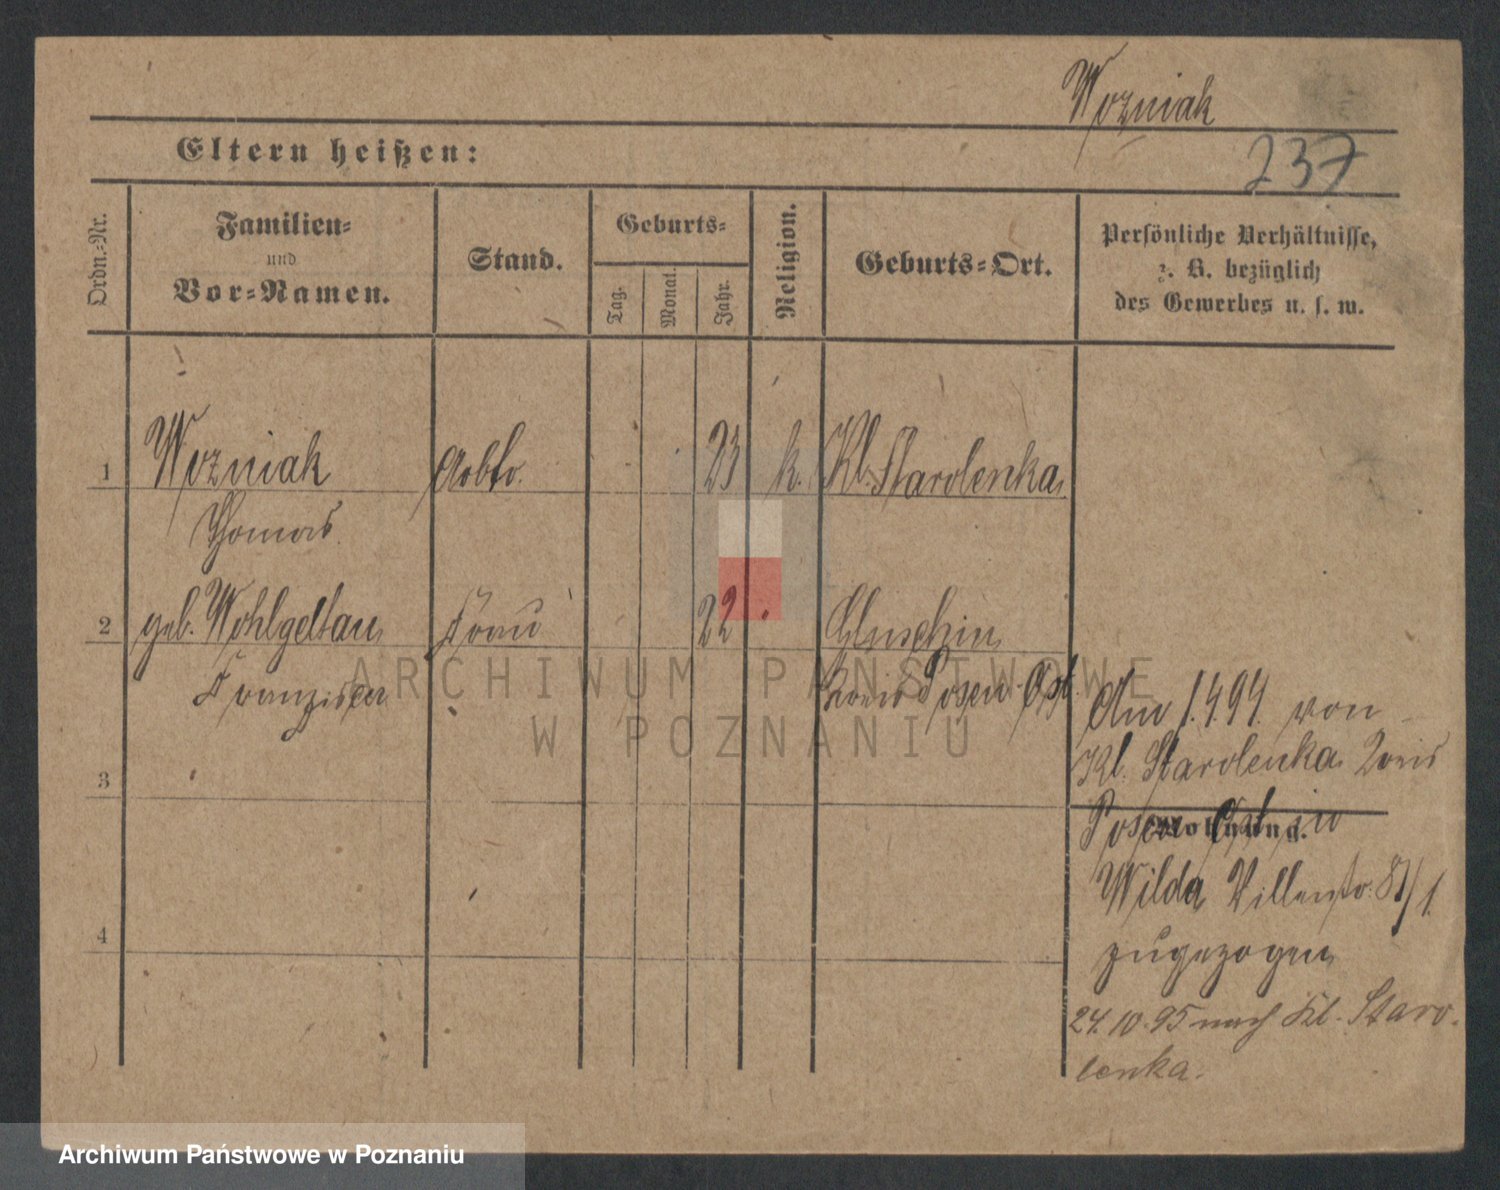 Wozniak
Eltern heißen:
237
Ordn.-Nr.
Familien-
und
Vor-Namen.
Stand.
Geburts-
Tag.
Monat.
Jahr.
Religion.
Geburts-Ort.
Persönliche Verhältnisse,
z. B. bezüglich
des Gewerbes u. s. w.
1
Wozniak
Arbtr.
23
k.
Kl. Starolenka
Thomas
2
geb. Wohlgeltan
Frau
22
"
Gluschin
Franziska
Kreis Posen Ost
Am 1.4.94. von
Kl. Starolenka Kreis
3
Wohnung.
Posen Ost in
Wilda Villenstr. 81/1.
4
zugezogen
24.10.95 nach Kl. Staro-
lenka.
ARCHIWUM PAŃSTWOWE
W POZNANIU
Archiwum Państwowe w Poznaniu